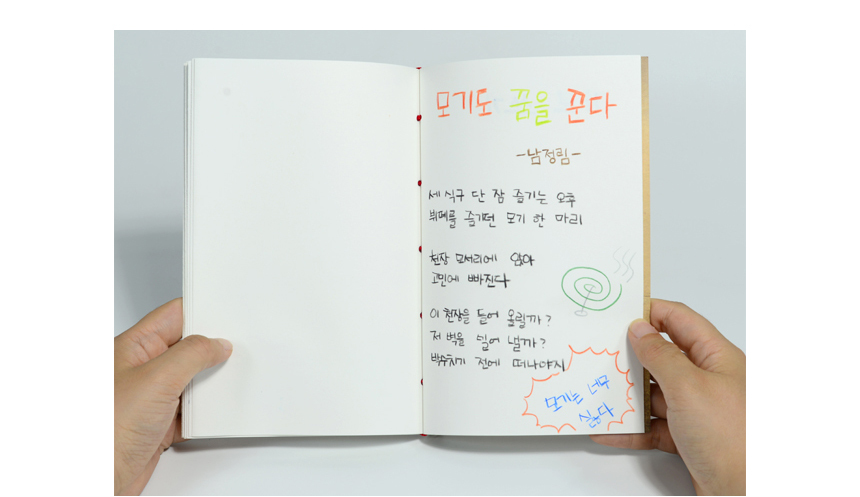 모기도 꿈을 꾼다
-남정림-
세 식구 단 잠 즐기는 오후
뷔페를 즐기던 모기 한 마리
천장 모서리에 앉아
고민에 빠진다
이 천장을 들어 올릴까?
저 벽을 밀어 낼까?
박수치기 전에 떠나야지
모기는 너무
싫다